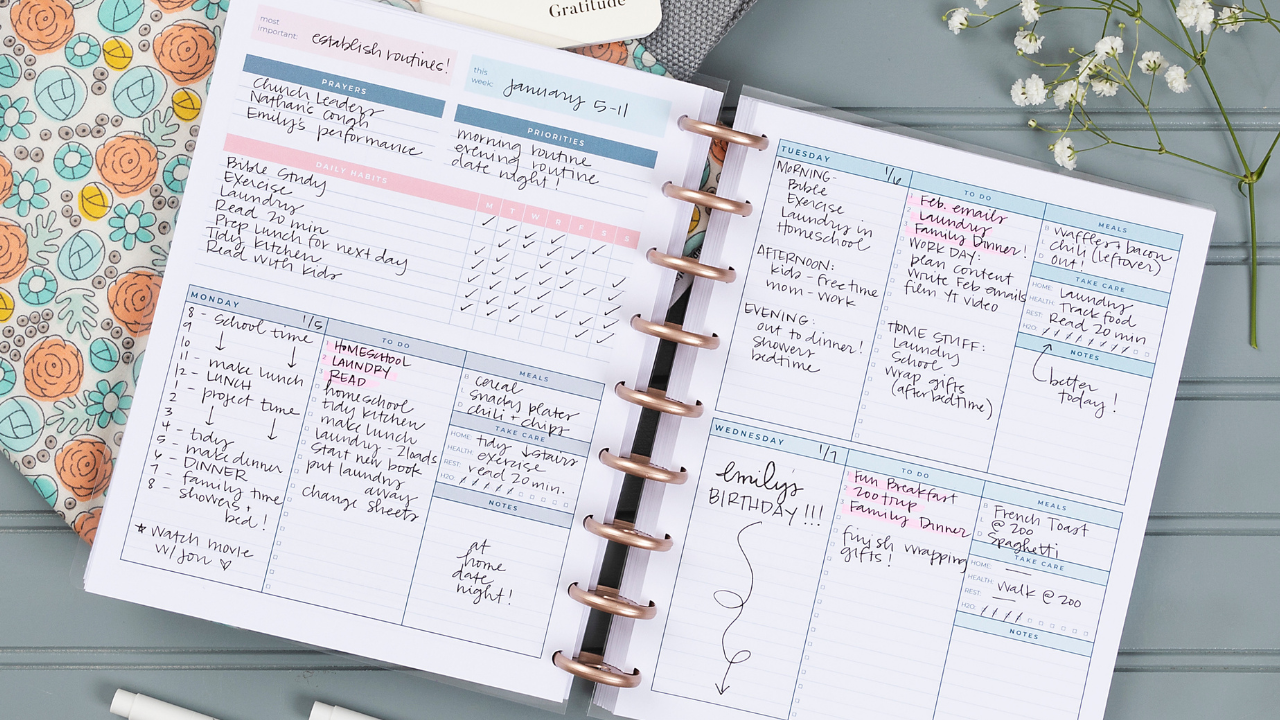 Gratitude
most important:
establish routines!
this week:
January 5-11
PRAYERS
Church Leaders
Nathan's cough
Emily's performance
PRIORITIES
morning routine
evening routine
date night!
DAILY HABITS
M T W R F S S
Bible Study
Exercise
Laundry
Read 20 min
Prep Lunch for next day
Tidy kitchen
Read with kids
MONDAY 1/5
8 - school time
9
10
11 - make lunch
12 - LUNCH
1 - project time
2
3
4 - tidy
5 - make dinner
6 - DINNER
7 - family time
8 - showers,
bed!
* Watch movie
w/Jon ♡
TO DO
HOMESCHOOL
LAUNDRY
READ
homeschool
tidy kitchen
make lunch
laundry - 2 loads
start new book
put laundry
away
change sheets
MEALS
B: cereal
L: snacky plater
D: chili + chips
TAKE CARE
HOME: tidy ↓stairs
HEALTH: exercise
REST: read 20 min.
H2O:
NOTES
at
home
date
night!
TUESDAY 1/6
MORNING-
Bible
Exercise
Laundry in
Homeschool
AFTERNOON:
kids - free time
mom - work
EVENING:
out to dinner!
showers
bedtime
TO DO
Feb. emails
Laundry
Family Dinner!
WORK DAY:
plan content
Write Feb emails
film YT video
HOME STUFF:
Laundry
School
Wrap gifts
(after bedtime)
MEALS
B: Waffles + bacon
L: chili (leftover)
D: out!
TAKE CARE
HOME: Laundry
HEALTH: Track food
REST: Read 20 min
H2O:
NOTES
better
today!
WEDNESDAY 1/7
emily's
BIRTHDAY!!!
TO DO
Fun Breakfast
zoo trip
Family Dinner
finish wrapping
gifts!
MEALS
French Toast
@ zoo
Spaghetti
TAKE CARE
HOME:
HEALTH: Walk @ zoo
REST:
H2O:
NOTES